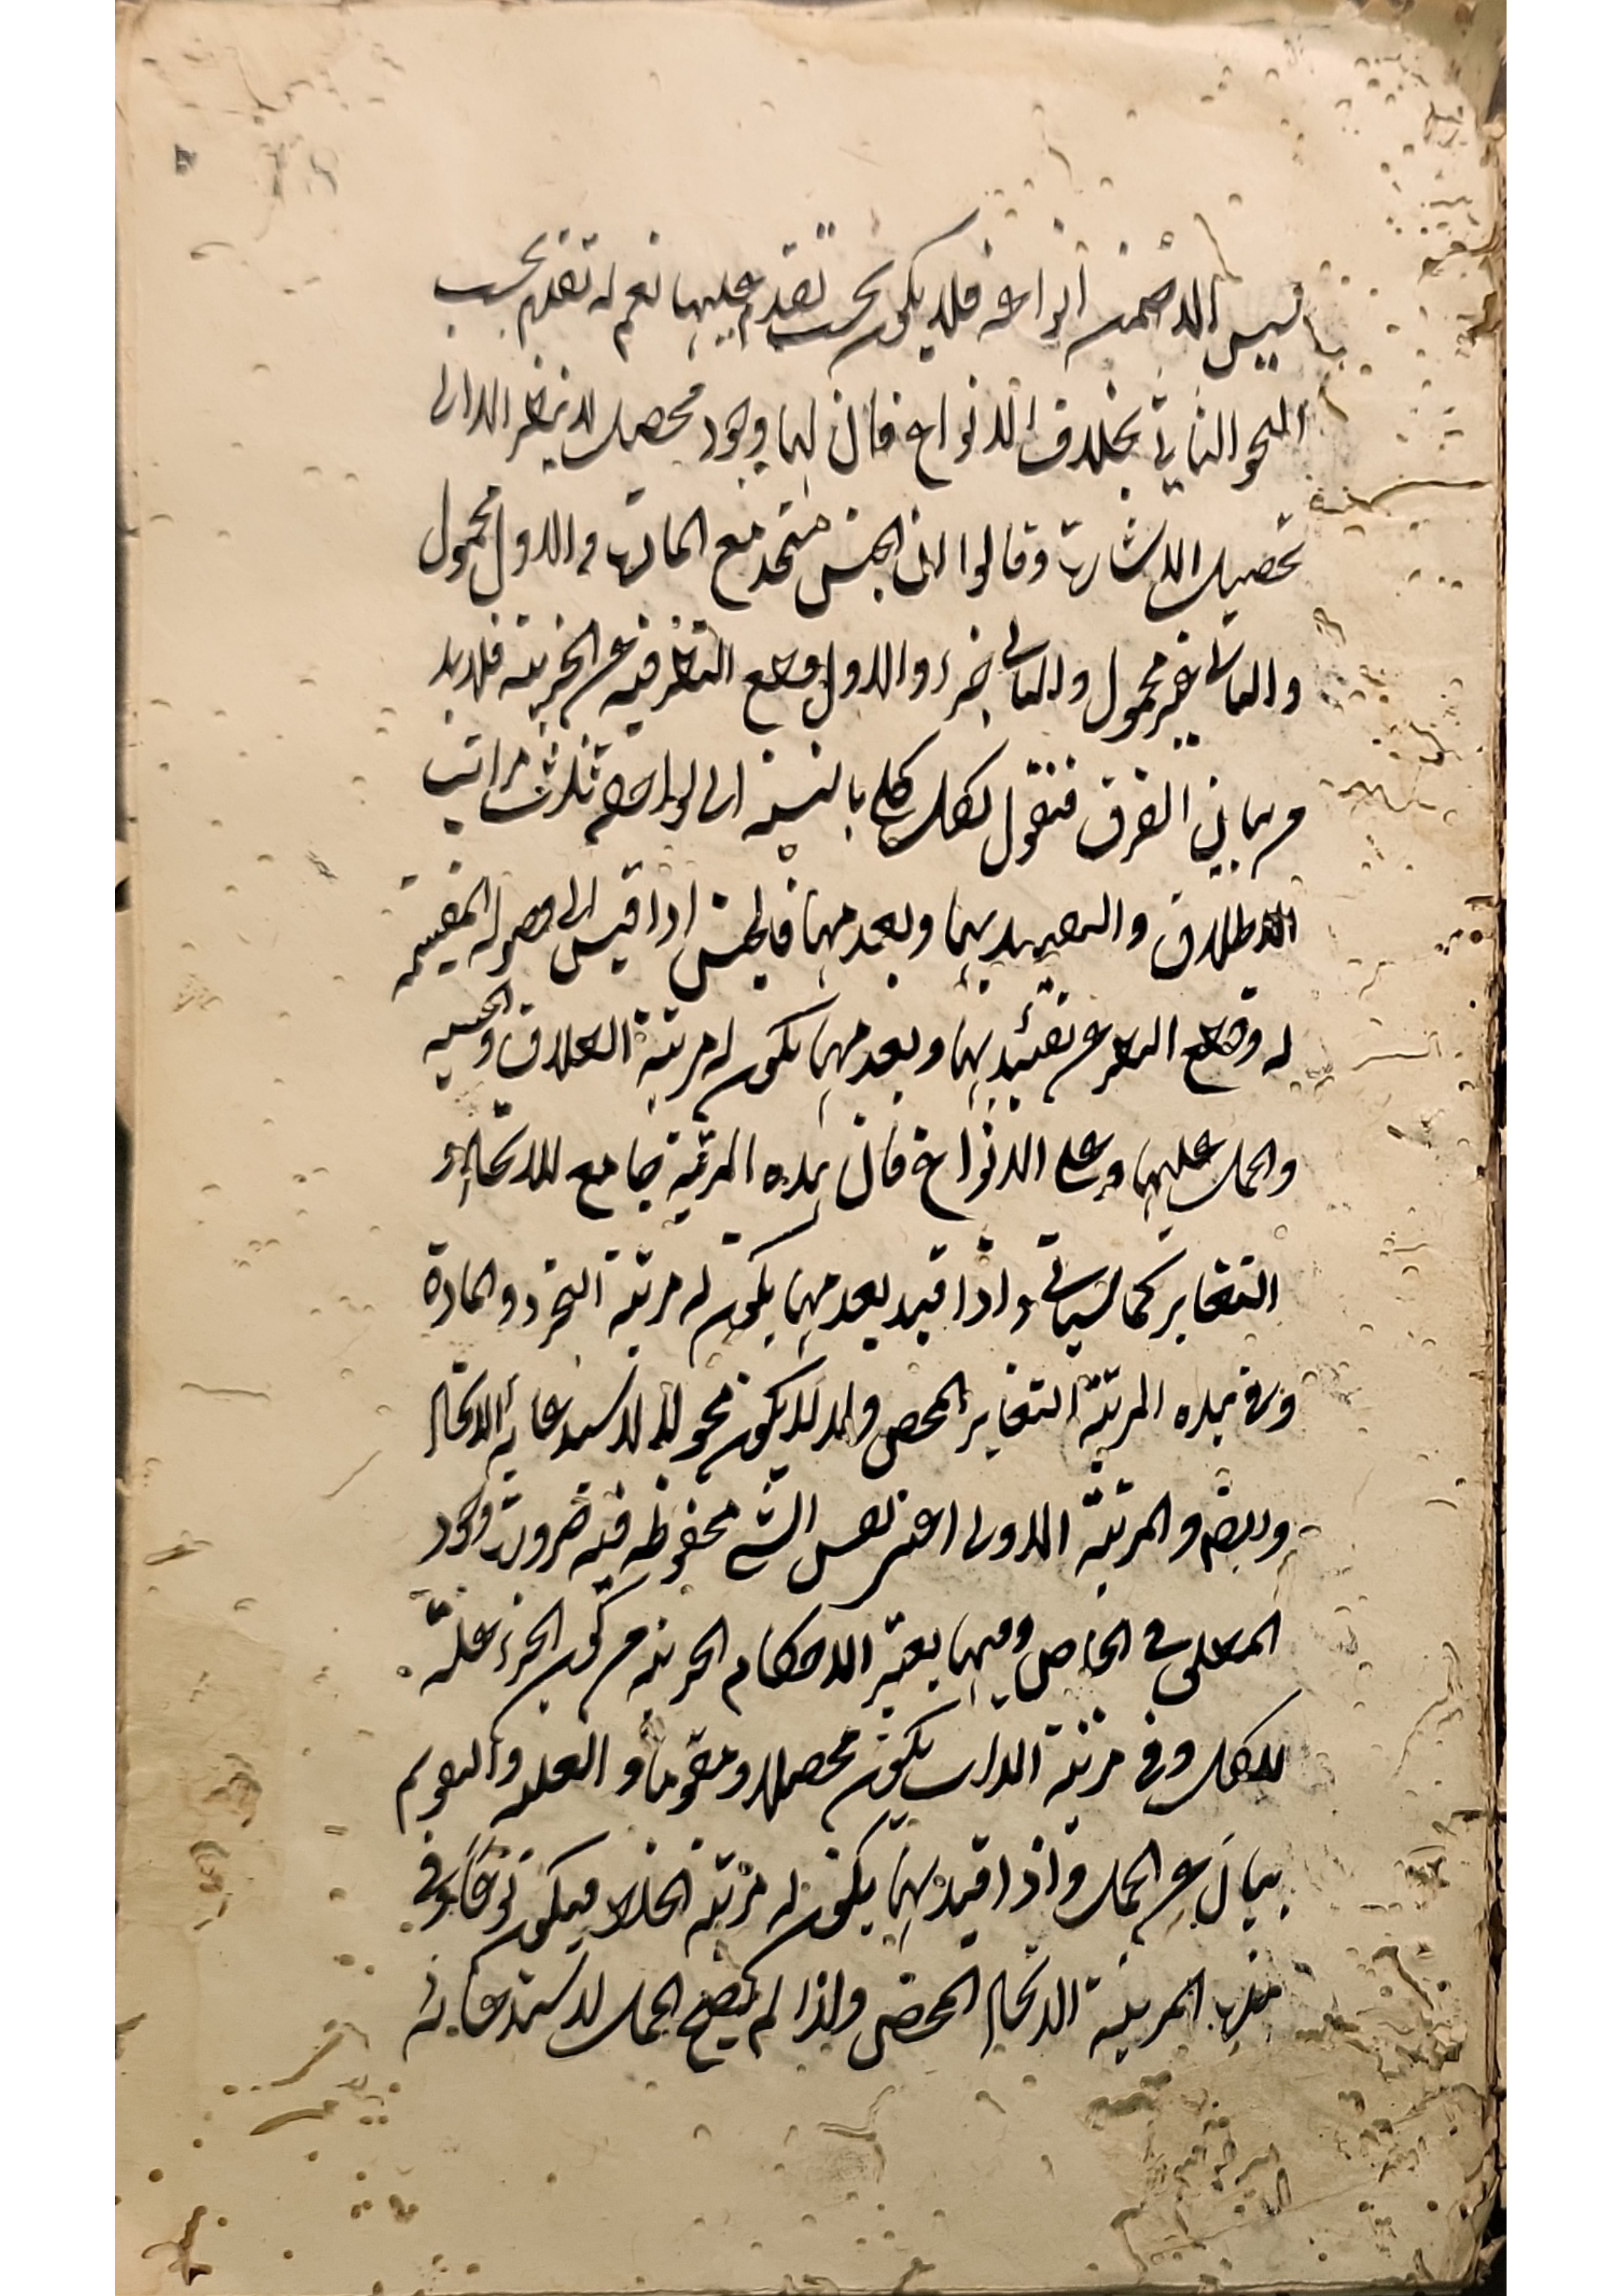 ليس الا ضمن انواعه فلا يكون بحسب تقدم عليها نعم له تقدم بحسب
النحو الثاني بخلاف الانواع فان لها وجود محصل لا ينظر الا الى
تحصيل الاشارة وقالوا ان الجنس متحد مع المادة والاول محمول
والثاني غير محمول والثاني جزء والاول وقطع النظر فيه عن الجزئية فلا بد
من بيان الفرق فنقول لكل كلي بالنسبة الى لواحقه ثلاث مراتب
الاطلاق والتقييد بها وبعدمها فالجنس اذا قيس الى فصوله المقسمة
له وقطع النظر عن تقييده بها وبعدمها يكون له مرتبة الاطلاق والجنسية
والحمل عليها وعلى الانواع فان هذه المرتبة جامع للاتحاد و
التغاير كما سياتي واذا قيد بعدمها يكون له مرتبة التجرد والمادة
وفي هذه المرتبة التغاير المحض ولذا لا يكون محمولا لاستدعائه الاتحاد
والمرتبة الاولى اعني نفس الشئ محفوظة فيه ضرورة وجود
المطلق في الخاص وفيها يعتبر الاحكام الجزئية من كون الجزء علة
للكل وفي مرتبة الذات يكون محصلا ومقوما والعلية والتقويم
يأبى عن الحمل واذا قيد بها يكون له مرتبة الخلط فيكون نوعا وفي
هذه المرتبة الاتحاد المحض ولذا لم يصح الحمل لاستدعائه